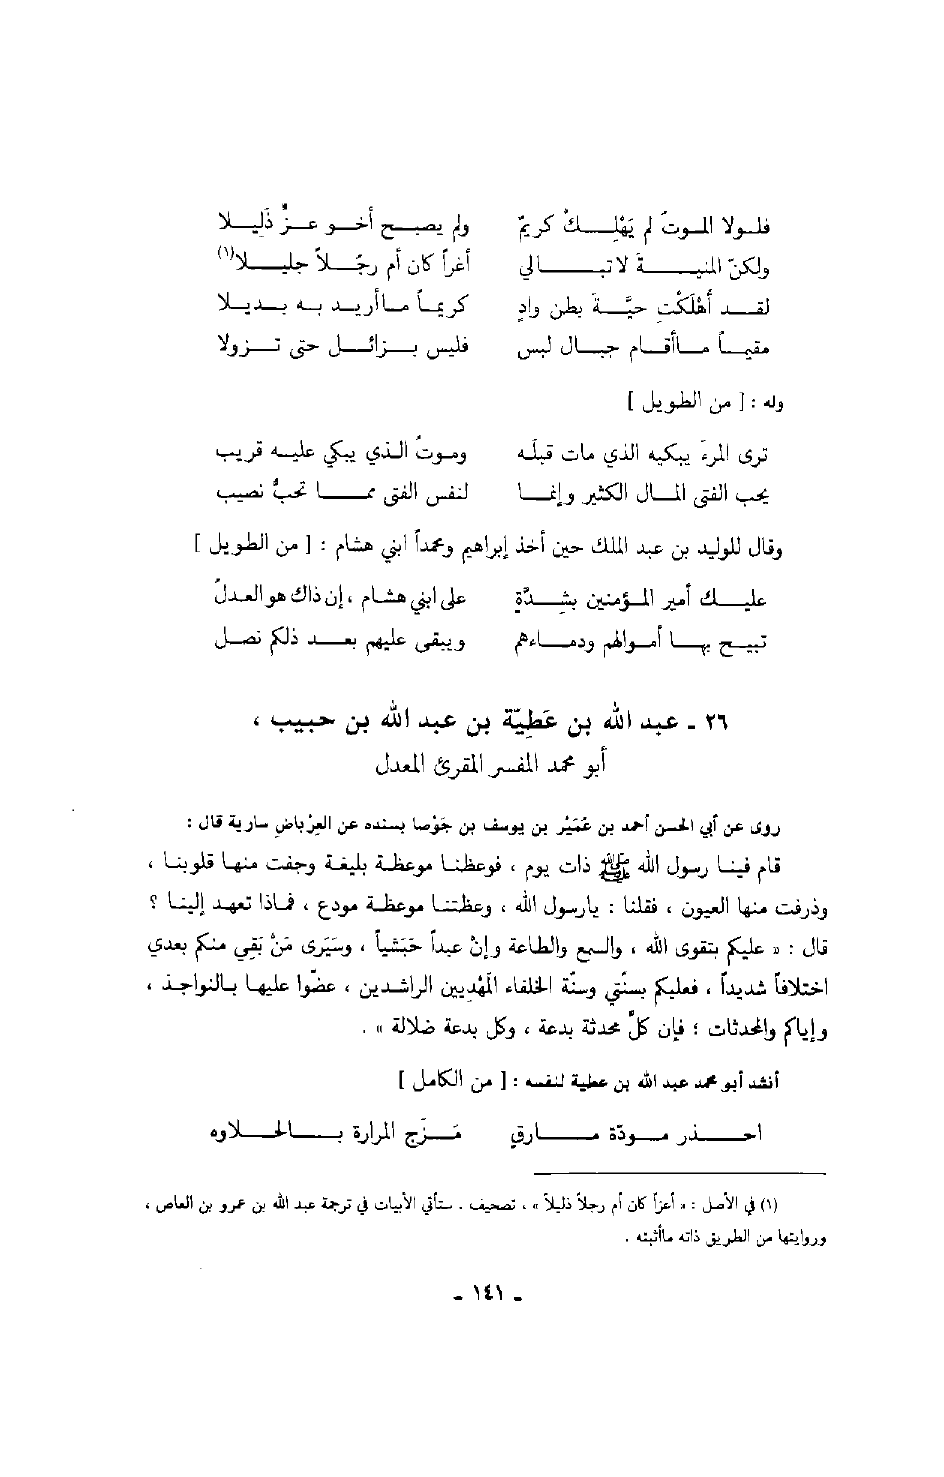 فلولا الموتُ لم يَهْلِكْ كريمٌ ولم يصبح أخو عزٍّ ذَليلا
ولكنّ المنيةَ لا تبالي أغراً كان أم رجُلاً جليلا(١)
لقد أَهْلَكْتِ حيَّةَ بطن وادٍ كريماً ماأريد به بديلا
مقيماً ماأقام جبال لبس فليس بزائل حتى تزولا
وله : [ من الطويل ]
ترى المرءَ يبكيه الذي مات قبلَه وموتُ الذي يبكي عليه قريب
يحب الفتى المال الكثير وإنما لنفس الفتى مما تحبُّ نصيب
وقال للوليد بن عبد الملك حين أخذ إبراهيم ومحمداً ابني هشام : [ من الطويل ]
عليك أمير المؤمنين بشدّةٍ على ابني هشام ، إن ذاك هو العدلُ
تبيح بها أموالهم ودماءهم ويبقى عليهم بعد ذلكم نصل
٢٦ ـ عبد الله بن عَطِيّة بن عبد الله بن حبيب ،
أبو محمد المفسر المقرئ المعدل
روى عن أبي الحسن أحمد بن عُمَيْر بن يوسف بن جَوْصا بسنده عن العِرْباضِ سارية قال :
قام فينا رسول الله ﷺ ذات يوم ، فوعظنا موعظة بليغة وجفت منها قلوبنا ،
وذرفت منها العيون ، فقلنا : يارسول الله ، وعظتنا موعظة مودع ، فماذا تعهد إلينا ؟
قال : « عليكم بتقوى الله ، والسمع والطاعة وإنْ عبداً حَبَشياً ، وسَيَرى مَنْ بَقِي منكم بعدي
اختلافاً شديداً ، فعليكم بسنّتي وسنّة الخلفاء المَهْديين الراشدين ، عضّوا عليها بالنواجذ ،
وإياكم والمحدثات ؛ فإن كلَّ محدثة بدعة ، وكل بدعة ضلالة » .
أنشد أبو محمد عبد الله بن عطية لنفسه : [ من الكامل ]
احذر مودّة مارقٍ مَزَج المرارة بالحلاوه
(١) في الأصل : « أعزاً كان أم رجلاً ذليلاً » ، تصحيف . ستأتي الأبيات في ترجمة عبد الله بن عمرو بن العاص ،
وروايتها من الطريق ذاته ماأثبته .
ـ ١٤١ ـ